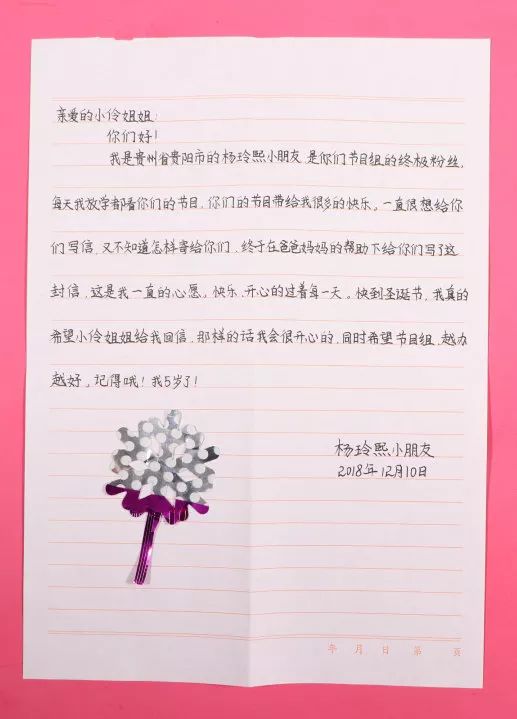 亲爱的小伶姐姐:
你们好!
我是贵州省贵阳市的杨玲熙小朋友,是你们节目组的终极粉丝,
每天我放学都看你们的节目,你们的节目带给我很多的快乐。一直很想给你
们写信,又不知道怎样寄给你们,终于在爸爸妈妈的帮助下给你们写了这
封信,这是我一直的心愿。快乐、开心的过着每一天。快到圣诞节,我真的
希望小伶姐姐给我回信,那样的话我会很开心的,同时希望节目组,越办
越好。记得哦!我5岁了!
杨玲熙小朋友
2018年12月10日
年 月 日 第 页